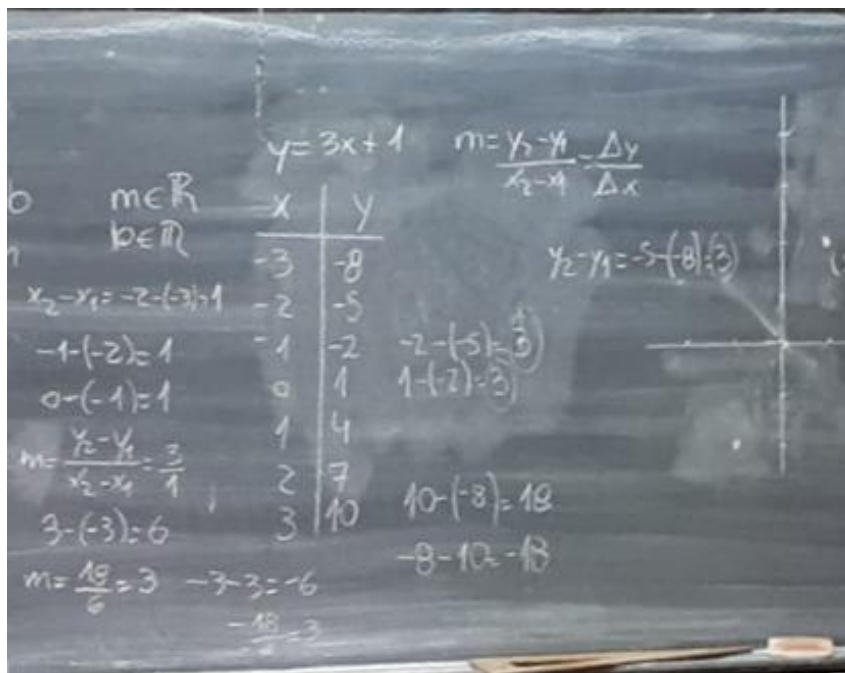 y = 3x + 1
m = (y₂-y₁)/(x₂-x₁) = Δy/Δx
m∈ℝ
b∈ℝ
x | y
-3 | -8
-2 | -5
-1 | -2
0 | 1
1 | 4
2 | 7
3 | 10
x₂-x₁=-2-(-3)=1
-1-(-2)=1
0-(-1)=1
m=(y₂-y₁)/(x₂-x₁)=3/1
3-(-3)=6
m=18/6=3
-3-3=-6
y₂-y₁=-5-(-8)=3
-2-(-5)=3
1-(-2)=3
10-(-8)=18
-8-10=-18